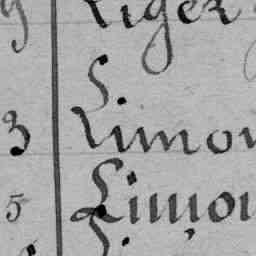 9 Liger
3 Limou
5 Limou